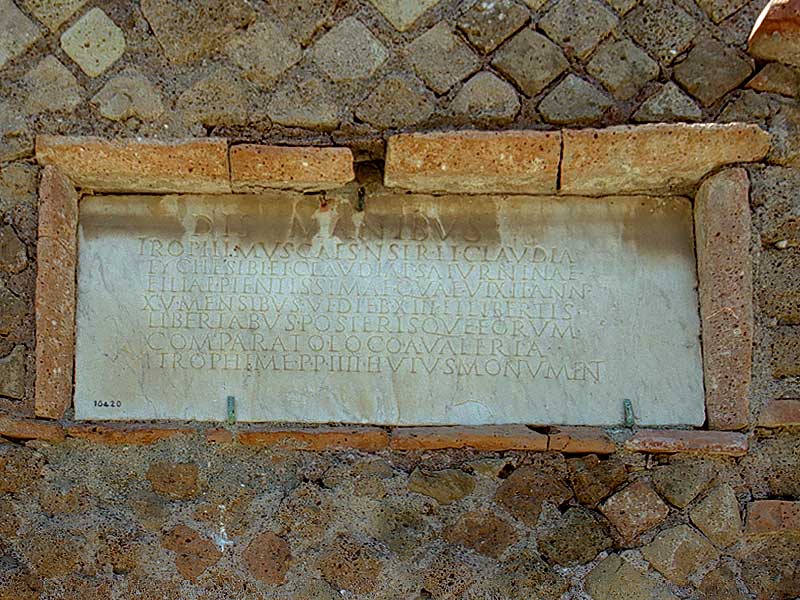 DIS MANIBVS
TROPHIMVS CAES N SER ET CLAVDIA
TYCHE SIBI ET CLAVDIAE SATVRNINAE
FILIAE PIENTISSIMAE QVAE VIX IT ANN
XV MENSIBVS VI DIEB XIII ET LIBERTIS
LIBERTABVS POSTERISQVE EORVM
COMPARATO LOCO A VALERIA
TROPHIME P P IIII HVIVS MONVMEN
10420